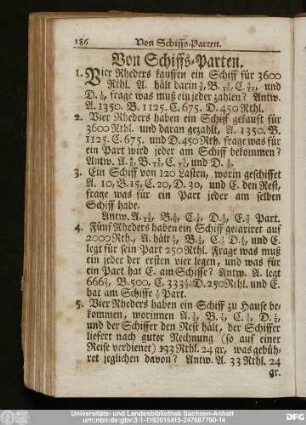 186 Von Schiffs-Parten.
Von Schiffs-Parten.
1. Vier Rheders kauffen ein Schiff für 3600
Rthl. A. hält darin B. C. und
D. frage was muß ein jeder zahlen? Antw.
A. 1350. B. 1125. C. 675. D. 450 Rthl.
2. Vier Rheders haben ein Schiff gekauft für
3600 Rthl. und daran gezahlt, A. 1350. B.
1125. C. 675. und D. 450 Rth. frage was für
ein Part wird jeder am Schiff bekommen?
Antw. A. B. C. und D.
3. Ein Schiff von 120 Lasten, worin geschiffet
A. 10, B. 15, C. 20, D. 30, und E. den Rest,
frage was für ein Part jeder am selben
Schiff habe.
Antw. A. B. C. D. E. Part.
4. Fünf Rheders haben ein Schiff gerariret auf
2000 Rth., A. hält B. C. D. und E.
legt für sein Part 250 Rthl. Frage was muß
ein jeder der ersten vier legen, und was für
ein Part hat E. am Schiffe? Antw. A. legt
666⅔, B. 500, C. 333⅓. D. 250 Rthl. und E.
hat am Schiffe Part.
5. Vier Rheders haben ein Schiff zu Hause be-
kommen, worinnen A. B. C. D.
und der Schiffer den Rest hält, der Schiffer
liefert nach guter Rechnung (so auf einer
Reise verdienet) 193 Rthl. 24 gr, was gebüh-
ret jeglichen davon? Antw. A. 33 Rthl. 24
gr.
Universitäts- und Landesbibliothek Sachsen-Anhalt
urn:nbn:de:gbv:3:1-1192015415-247687790-14